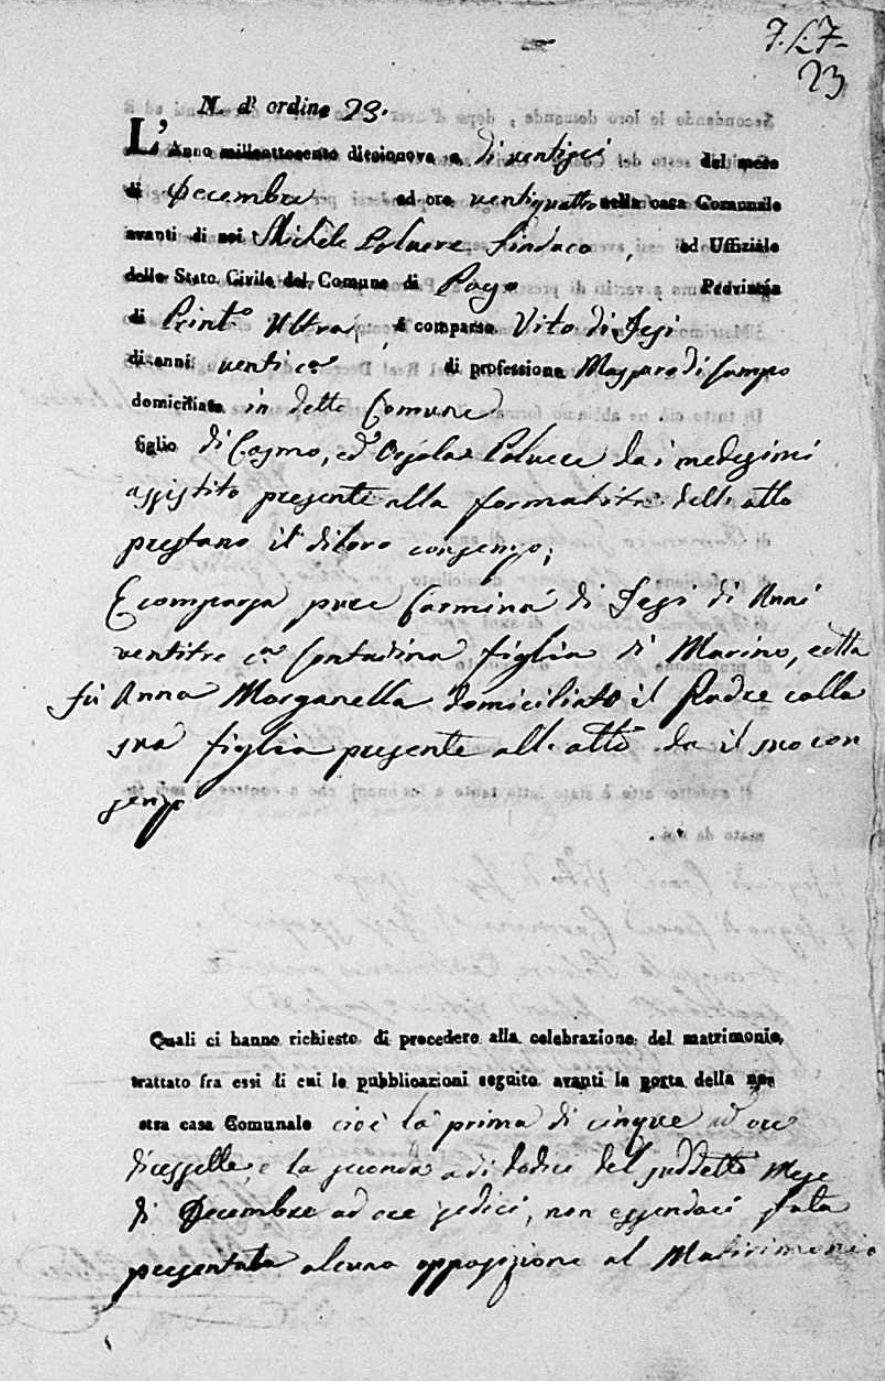 23
N. d' ordine 23.
L' Anno milleottocento diecinove a di ventisei del mese
di Decembre ad ore ventiquattro nella casa Comunale
avanti di noi Michele Polvere Sindaco, ed Uffiziale
dello Stato Civile del Comune di Pago Provincia
di Princ.to Ultra, è comparso Vito di Jesi
di anni venti c.a di professione Massaro di Campo
domiciliato in detto Comune
figlio di Cosmo, ed Orsola Polvere da i medesimi
assistito presenti alla formalità dell' atto
prestano il diloro consenso;
E comparsa pure Carmina di Jesi di Anni
ventitre c.a Contadina figlia di Marino, e della
fù Anna Morganella domiciliato il Padre colla
sua figlia presente all' atto da il suo con
senso
Quali ci hanno richiesto di procedere alla celebrazione del matrimonio,
trattato fra essi di cui le pubblicazioni seguito avanti la porta della no-
stra casa Comunale cioè la prima di cinque ad ore
diecissette, e la seconda a di dodici del suddetto Mese
di Decembre ad ore sedici, non essendoci stata
presentata alcuna opposizione al Matrimonio